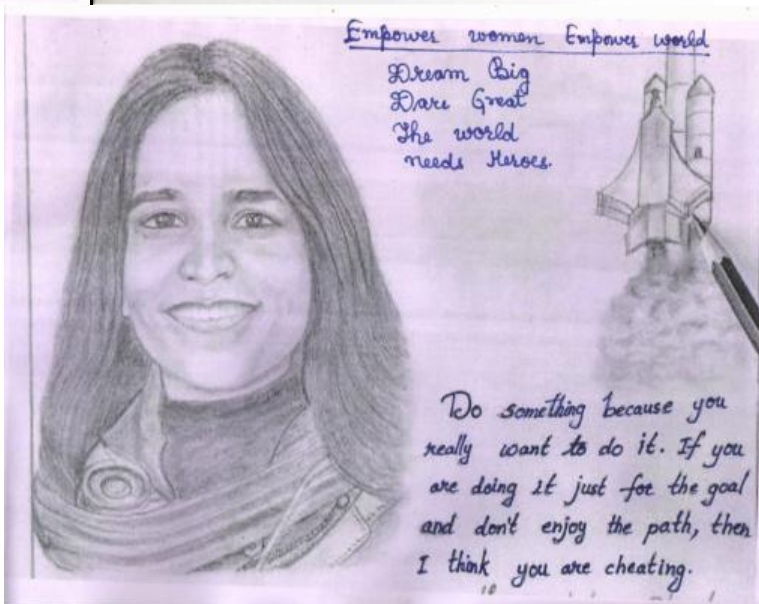 Empower women Empower world
Dream Big
Dare Great
The world
needs Heroes.
Do something because you
really want to do it. If you
are doing it just for the goal
and don't enjoy the path, then
I think you are cheating.